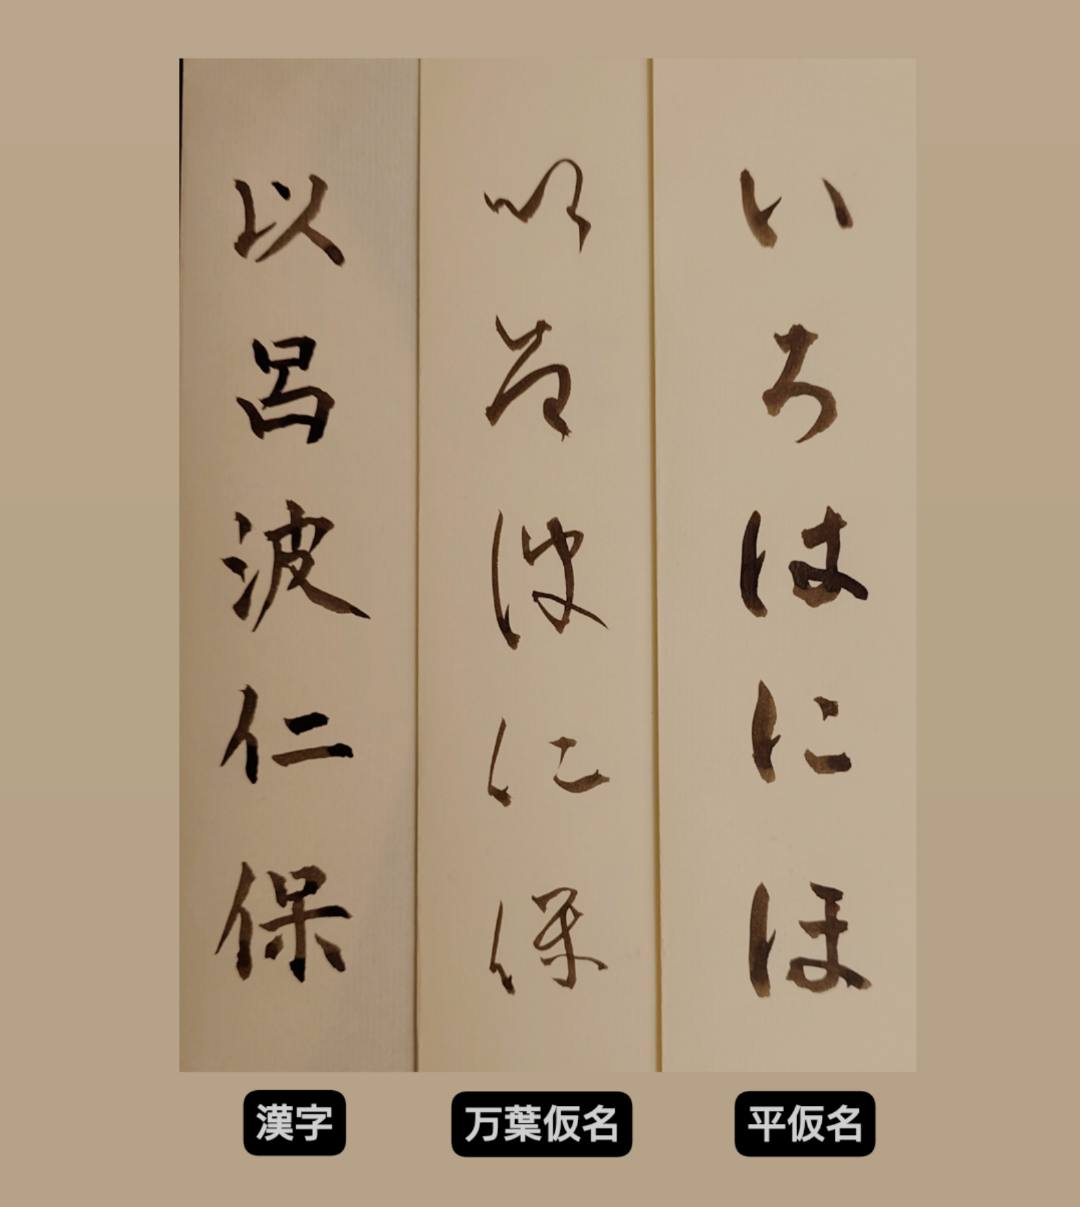 以呂波仁保
以呂波仁保
いろはにほ
漢字
万葉仮名
平仮名